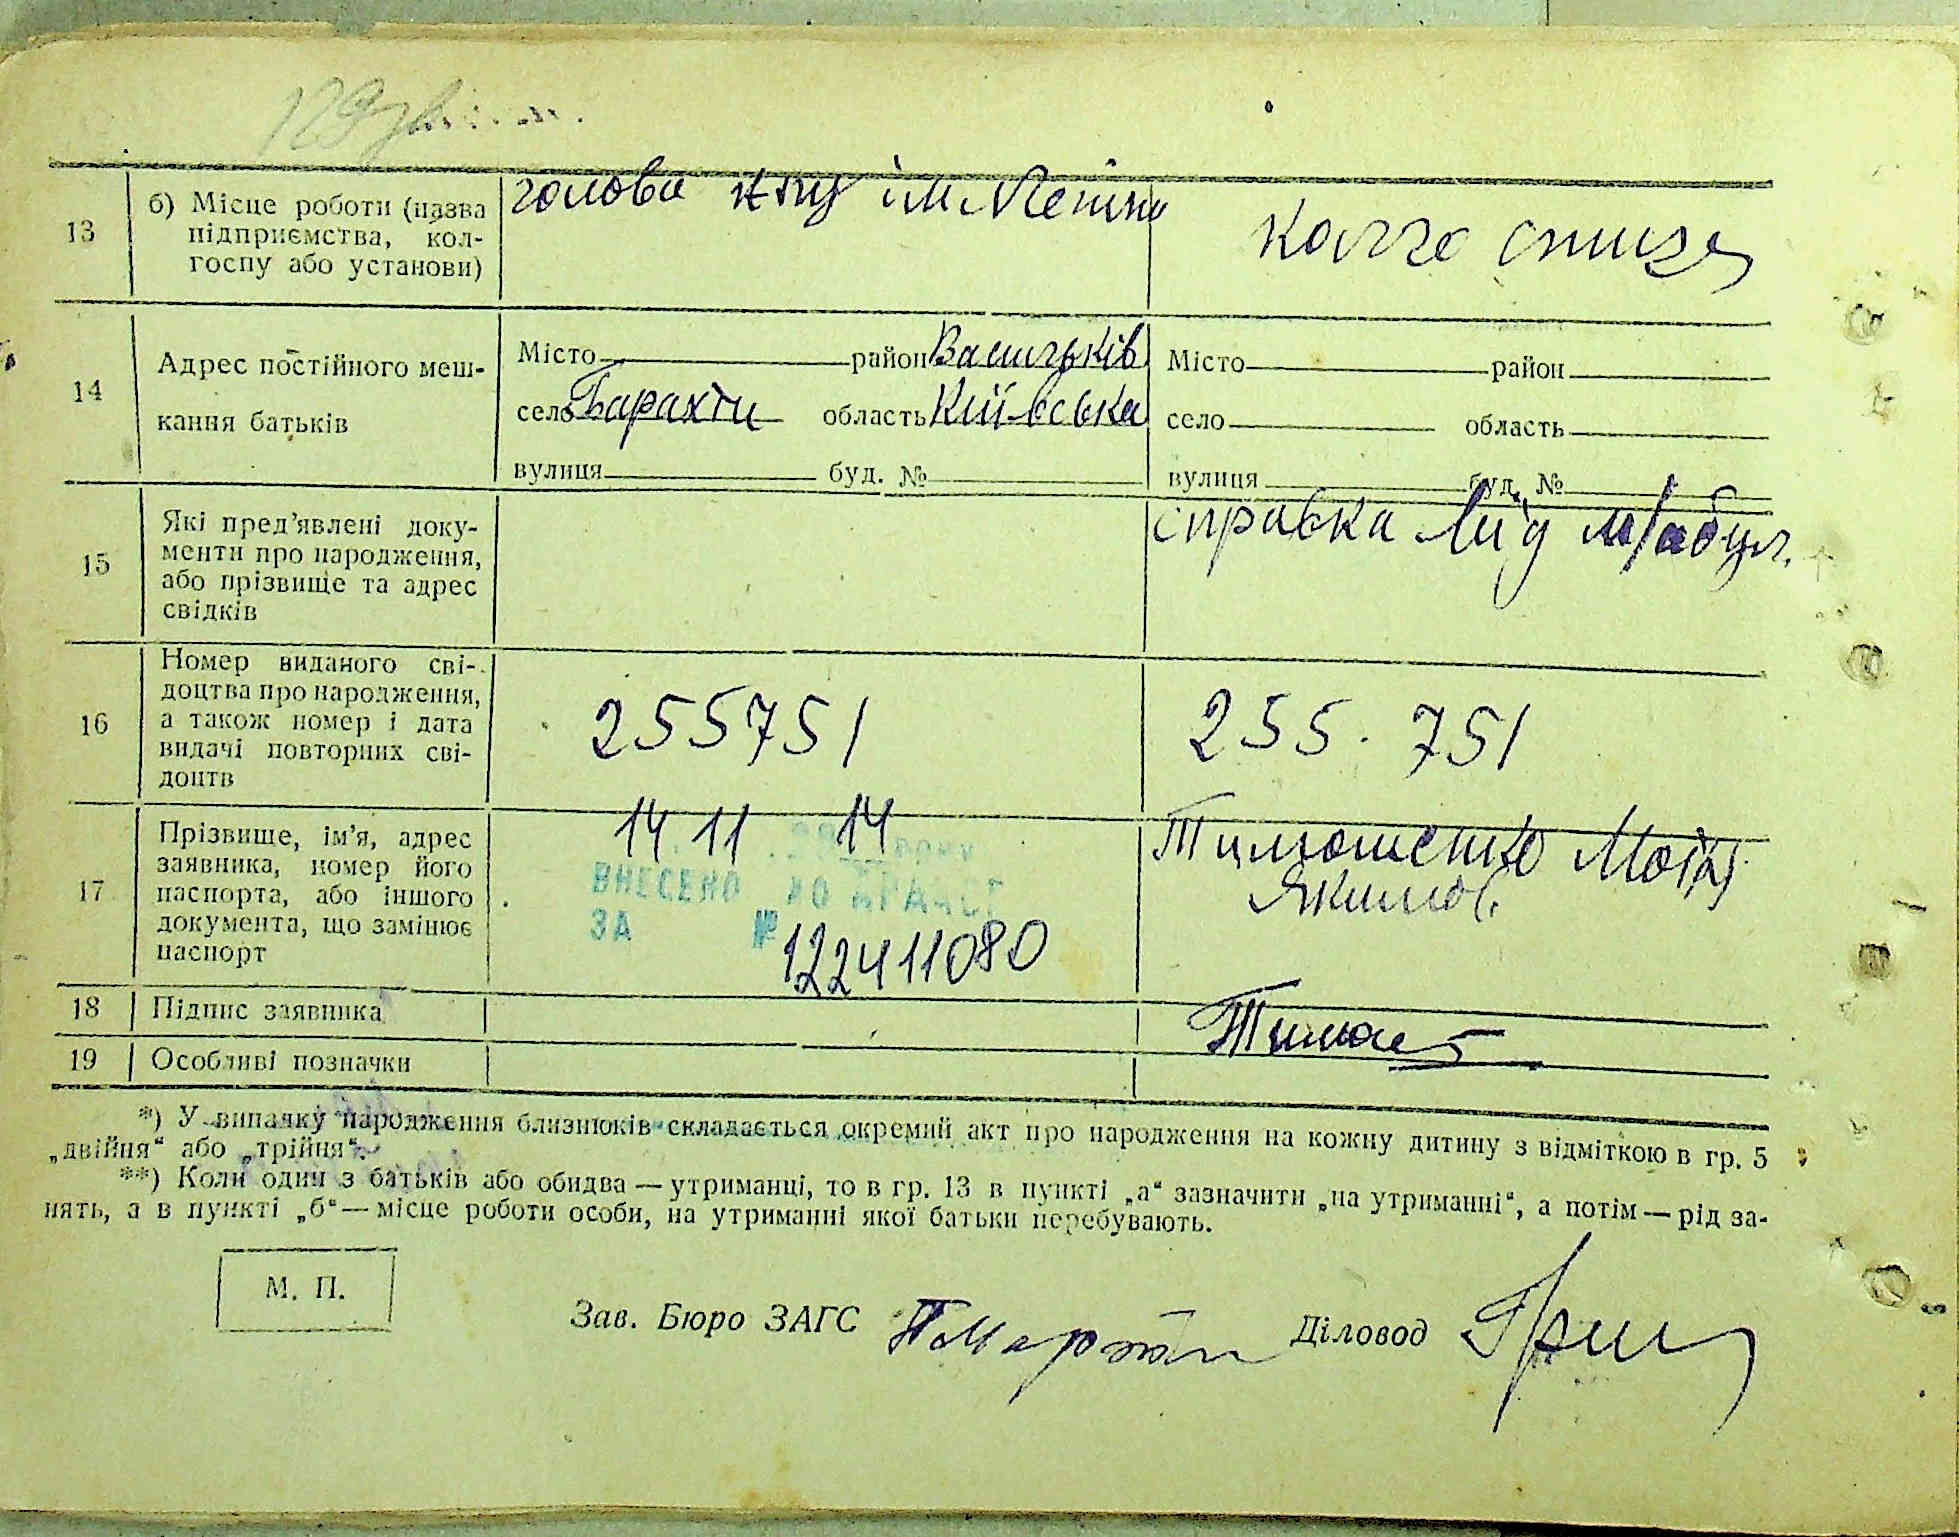 13
б) Місце роботи (назва
підприємства, кол-
госпу або установи)
голова к-пу ім. Леніна
колгоспниця
14
Адрес постійного меш-
кання батьків
Місто район Васильків
село Барахти область Київська
вулиця буд. №
Місто район
село область
вулиця буд. №
15
Які пред'явлені доку-
менти про народження,
або прізвище та адрес
свідків
справка від
16
Номер виданого сві-
доцтва про народження,
а також номер і дата
видачі повторних сві-
доцтв
255751
255.751
17
Прізвище, ім'я, адрес
заявника, номер його
паспорта, або іншого
документа, що замінює
паспорт
14 11 14
ВНЕСЕНО ДО ДРАЦСГ
ЗА №
122411080
Тимошенко
Якимов.
18
Підпис заявника
19
Особливі позначки
*) У випадку народження близнюків складається окремий акт про народження на кожну дитину з відміткою в гр. 5
„двійня“ або „трійня“.
**) Коли один з батьків або обидва — утриманці, то в гр. 13 в пункті „а“ зазначити „на утриманні“, а потім — рід за-
нять, а в пункті „б“ — місце роботи особи, на утриманні якої батьки перебувають.
М. П.
Зав. Бюро ЗАГС
Діловод